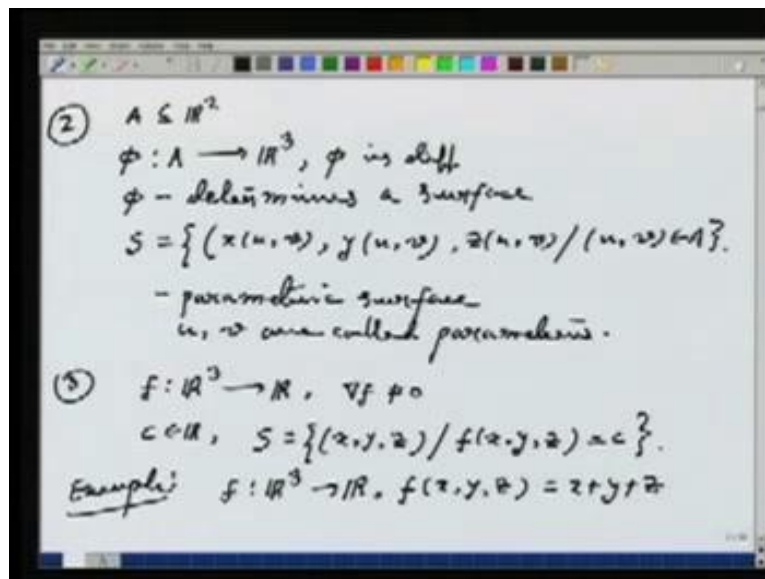 ② A ⊆ ℝ²
φ : A → ℝ³, φ is diff
φ - determines a surface
S = { (x(u,v), y(u,v), z(u,v) / (u,v) ∈ A }.
- parametric surface
u, v are called parameters.
③ f : ℝ³ → ℝ, ∇f ≠ 0
c ∈ ℝ, S = { (x,y,z) / f(x,y,z) = c }.
Example: f : ℝ³ → ℝ, f(x,y,z) = x+y+z